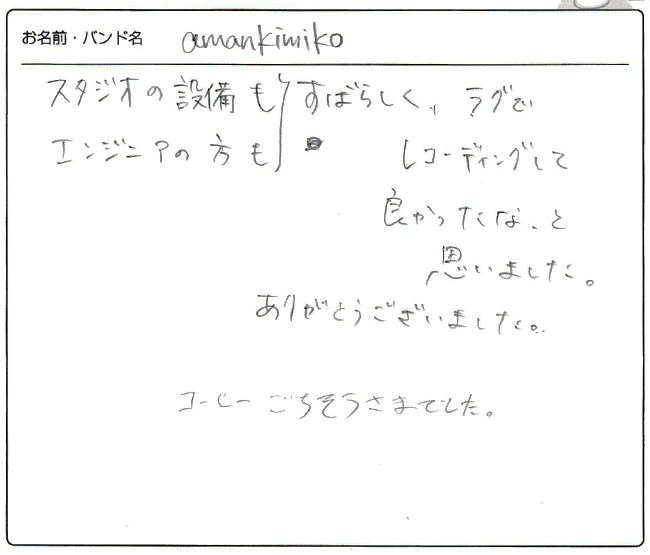 お名前・バンド名 amankimiko
スタジオの設備も すばらしく、ラグで
エンジニアの方も レコーディングして
良かったな、と
思いました。
ありがとうございました。
コーヒーごちそうさまでした。